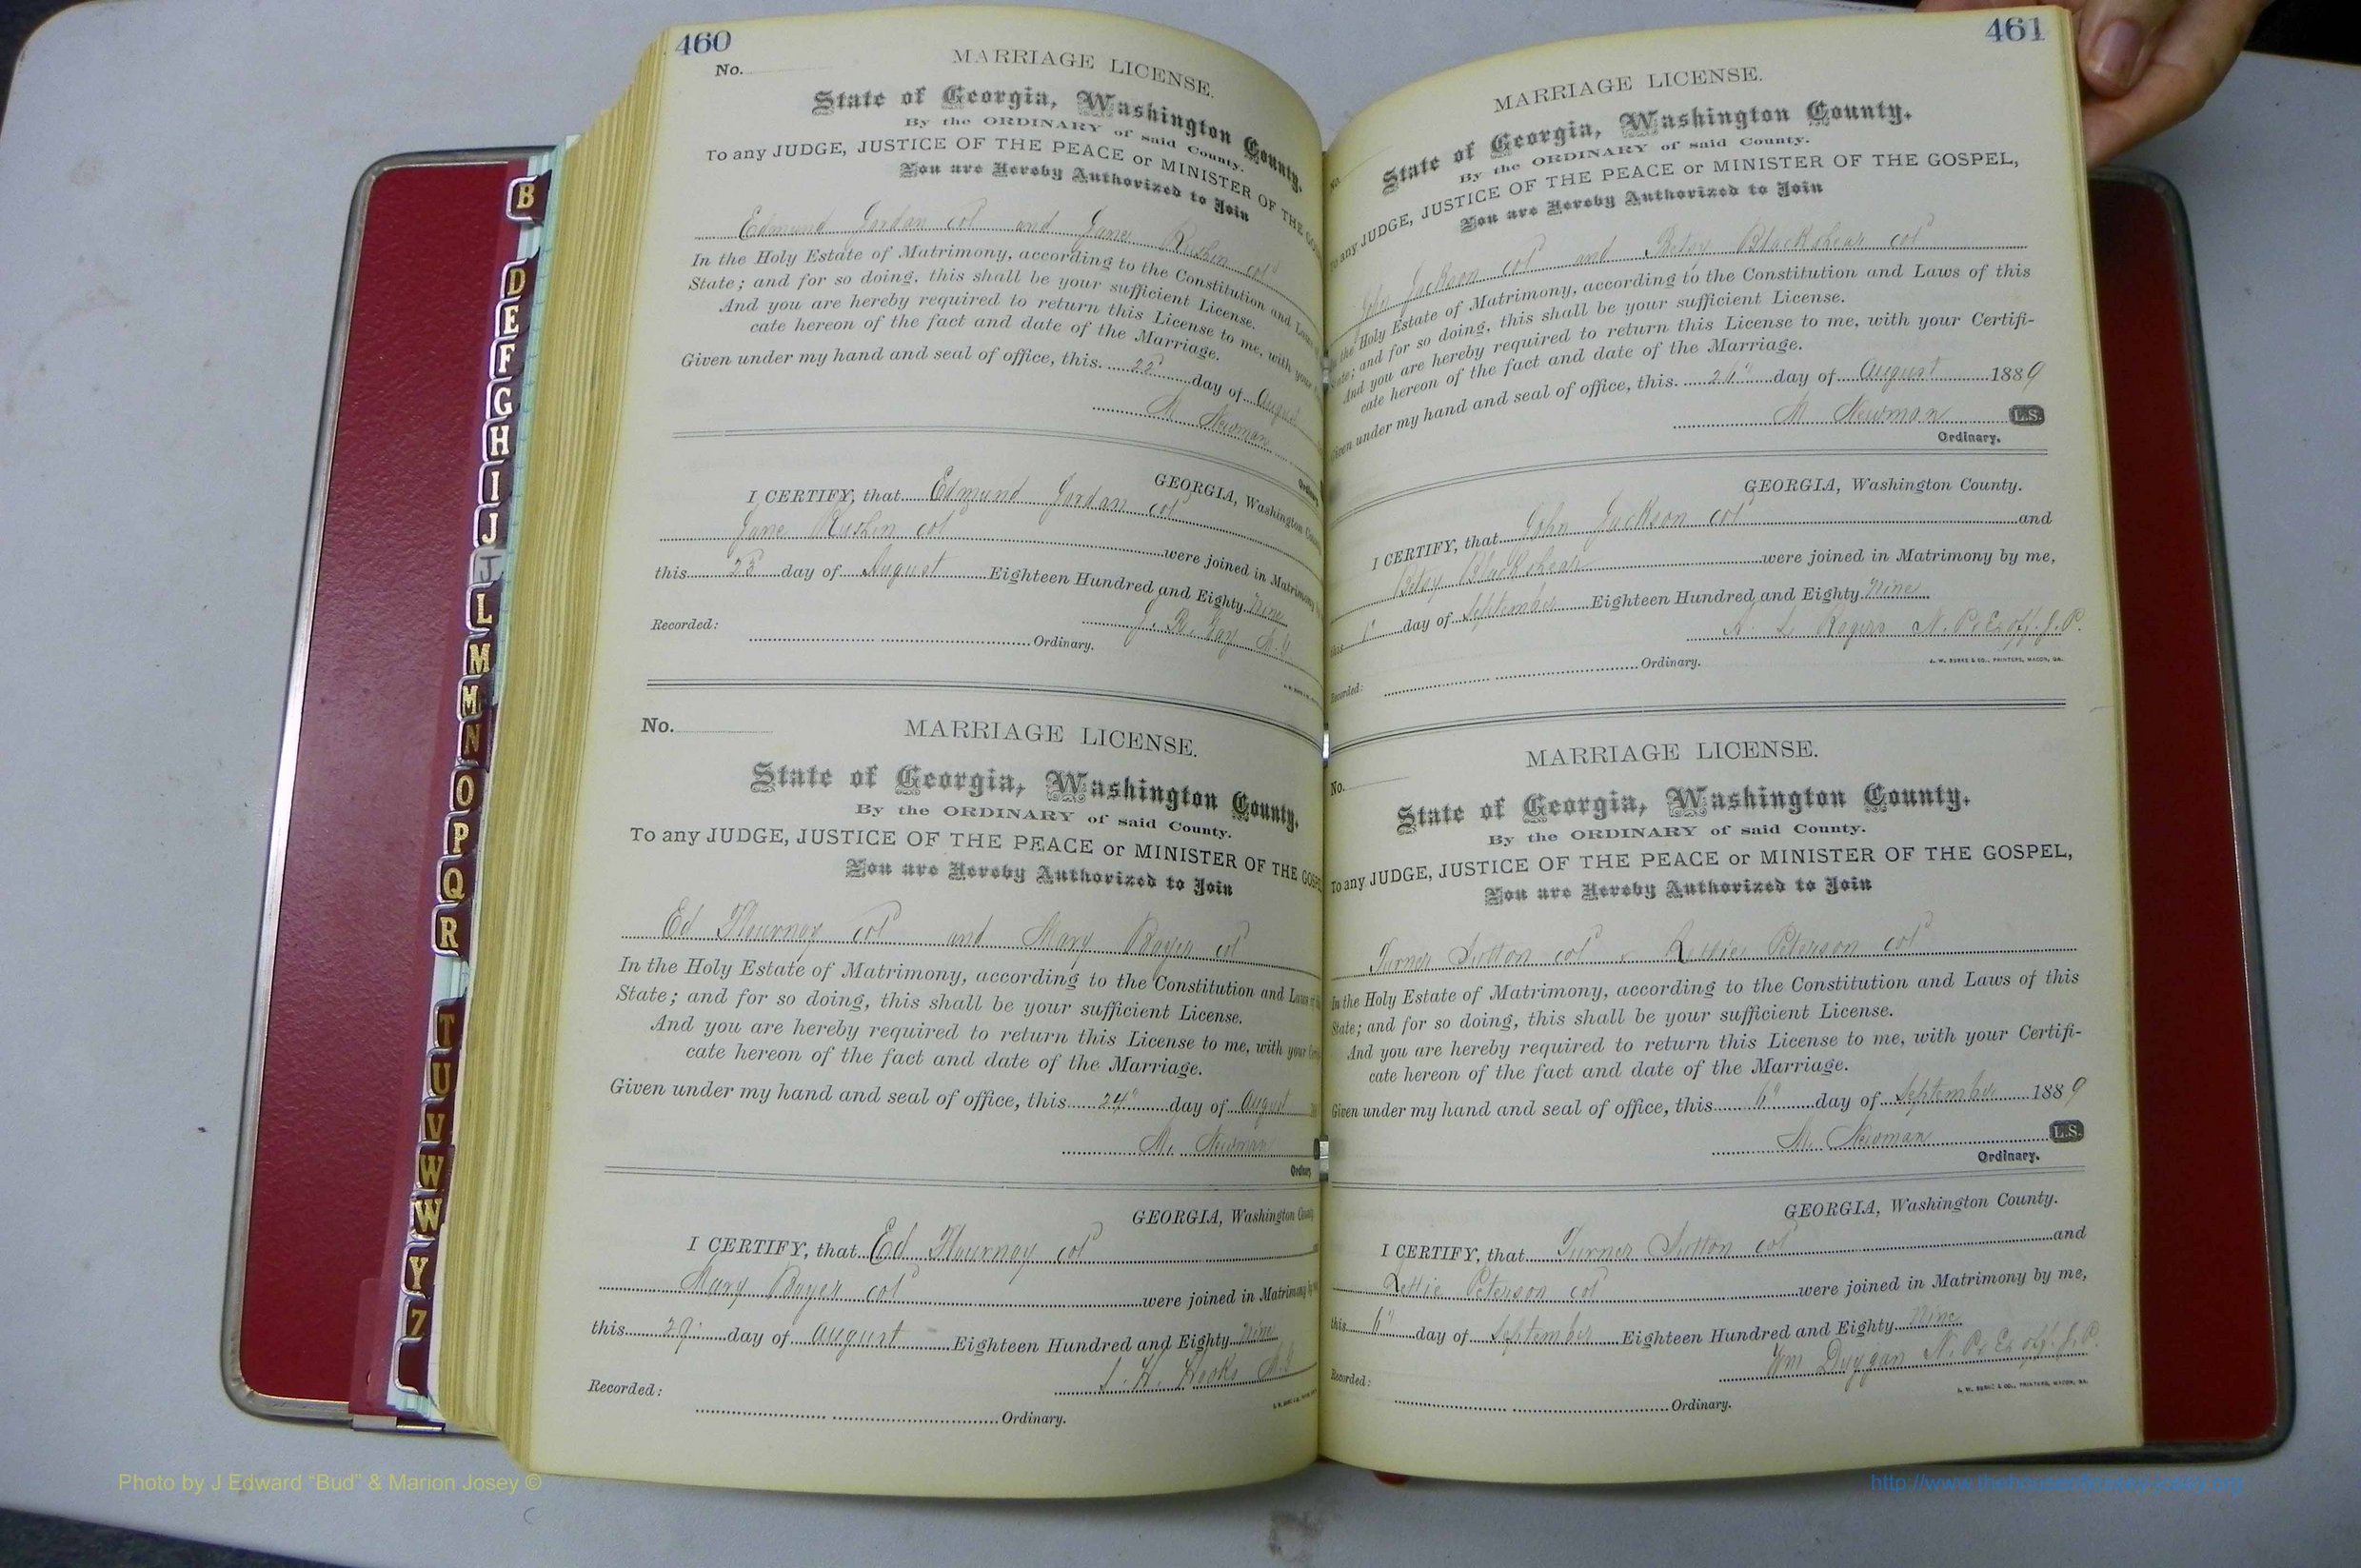 460
No.
MARRIAGE LICENSE.
State of Georgia, Washington County.
By the ORDINARY of said County.
To any JUDGE, JUSTICE OF THE PEACE or MINISTER OF THE
You are Hereby Authorized to Join
Edmund Jordan col and Jane Rushin col
In the Holy Estate of Matrimony, according to the Constitution and Laws
State; and for so doing, this shall be your sufficient License.
And you are hereby required to return this License to me, with your
cate hereon of the fact and date of the Marriage.
Given under my hand and seal of office, this day of August
M. Newman
GEORGIA, Washington County
I CERTIFY, that Edmund Jordan col
Jane Rushin col were joined in Matrimony
this 23 day of August Eighteen Hundred and Eighty Nine
J. B. Gay M.G
Recorded: Ordinary.
No.
MARRIAGE LICENSE.
State of Georgia, Washington County.
By the ORDINARY of said County.
To any JUDGE, JUSTICE OF THE PEACE or MINISTER OF THE GOSPEL
You are Hereby Authorized to Join
Ed Flournoy col and Mary Boyer col
In the Holy Estate of Matrimony, according to the Constitution and Laws
State; and for so doing, this shall be your sufficient License.
And you are hereby required to return this License to me, with your
cate hereon of the fact and date of the Marriage.
Given under my hand and seal of office, this 24" day of August
M. Newman
Ordinary
GEORGIA, Washington County
I CERTIFY, that Ed Flournoy col
Mary Boyer col were joined in Matrimony by
this 29 day of August Eighteen Hundred and Eighty Nine
S. H. Hooks M.G
Recorded:
Ordinary.
461
MARRIAGE LICENSE.
No.
State of Georgia, Washington County.
By the ORDINARY of said County.
To any JUDGE, JUSTICE OF THE PEACE or MINISTER OF THE GOSPEL,
You are Hereby Authorized to Join
John Jackson col and Betsy Blackshear col
the Holy Estate of Matrimony, according to the Constitution and Laws of this
State; and for so doing, this shall be your sufficient License.
And you are hereby required to return this License to me, with your Certifi-
cate hereon of the fact and date of the Marriage.
Given under my hand and seal of office, this 26" day of August 1889
M Newman L.S.
Ordinary.
GEORGIA, Washington County.
I CERTIFY, that John Jackson col and
Betsy Blackshear were joined in Matrimony by me,
this 1" day of September Eighteen Hundred and Eighty Nine
L. Rogers N.P. & Ex off. J.P.
Recorded: Ordinary.
J. W. BURKE & CO., PRINTERS, MACON, GA.
MARRIAGE LICENSE.
No.
State of Georgia, Washington County.
By the ORDINARY of said County.
To any JUDGE, JUSTICE OF THE PEACE or MINISTER OF THE GOSPEL,
You are Hereby Authorized to Join
Turner Sutton col & Lettie Peterson col
In the Holy Estate of Matrimony, according to the Constitution and Laws of this
State; and for so doing, this shall be your sufficient License.
And you are hereby required to return this License to me, with your Certifi-
cate hereon of the fact and date of the Marriage.
Given under my hand and seal of office, this 6" day of September 1889
M. Newman L.S.
Ordinary.
GEORGIA, Washington County.
I CERTIFY, that Turner Sutton col and
Lettie Peterson col were joined in Matrimony by me,
this 6" day of September Eighteen Hundred and Eighty Nine
Wm Duggan N.P. & Ex off. J.P.
Recorded:
Ordinary.
J. W. BURKE & CO., PRINTERS, MACON, GA.
B
D
E
F
G
H
I
J
J
L
M
M
N
O
P
Q
R
T
U
V
W
W
Y
Z
Photo by J Edward “Bud” & Marion Josey ©